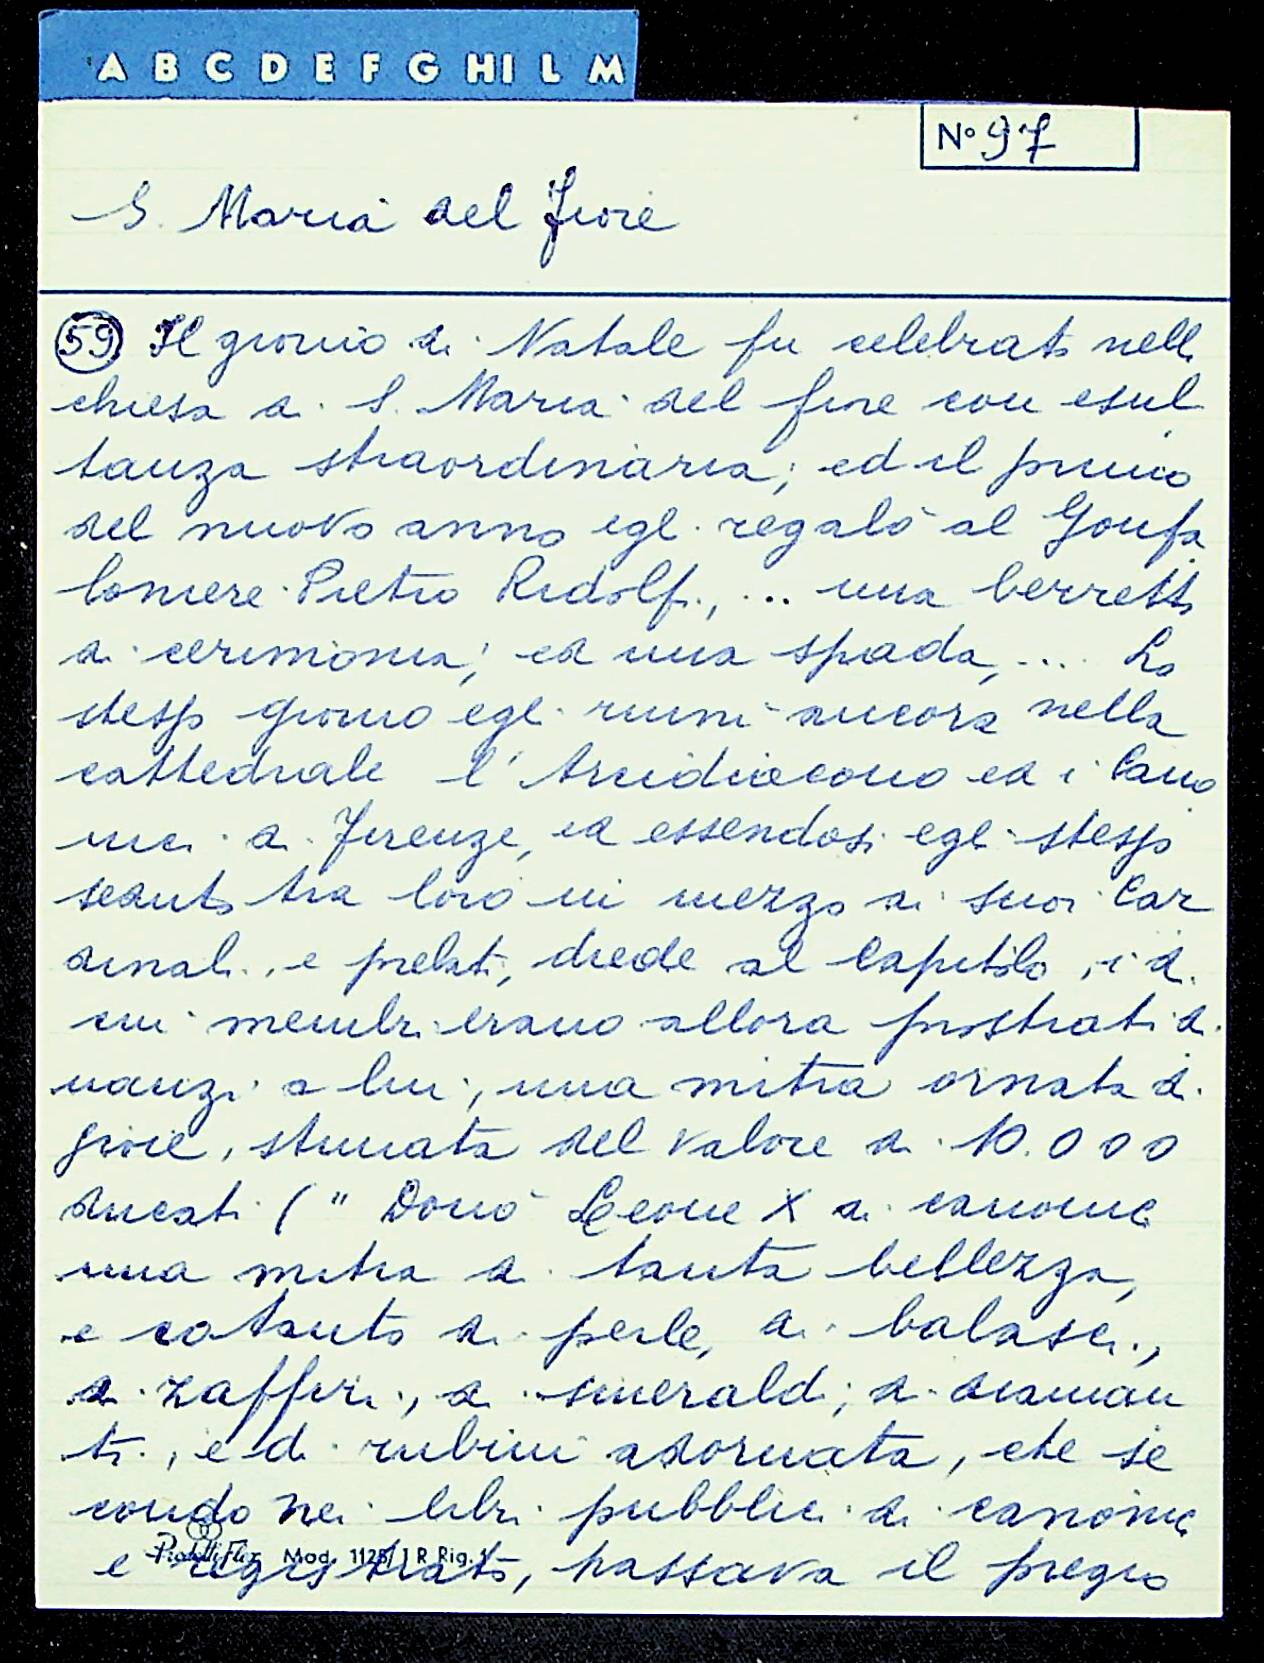 A B C D E F G HI L M
N° 97
S. Maria del Fiore
59 Il giorno di Natale fu celebrato nella
chiesa di S. Maria del fiore con esul
tanza straordinaria; ed il primo
del nuovo anno egli regalò al Gonfa
loniere Pietro Ridolfi, ... una berretta
di cerimonia; ed una spada, ... Lo
stesso giorno egli riunì ancora nella
cattedrale l'Arcidiacono ed i Cano
nici di Firenze, ed essendosi egli stesso
seduto tra loro in mezzo ai suoi Car
dinali, e prelati, diede al Capitolo, i di
cui membri erano allora prostrati di
nanzi a lui, una mitra ornata di
gioie, stimata del valore di 10.000
ducati (" Donò Leone X ai canonici
una mitra di tanta bellezza,
e cotanto di perle, di balasci,
di zaffiri, di smeraldi; di diaman
ti, e di rubini adornata, che se
condo nei libri pubblici di canonici
e registrato, passava il pregio
Mod. 1125/1 R Rig.